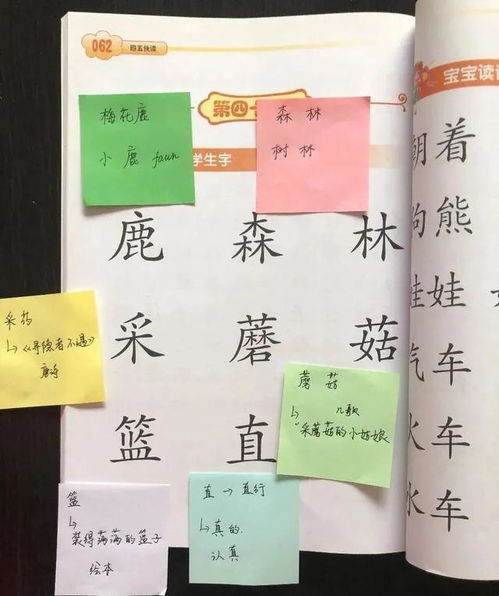 062 四五快读
宝宝读词
第四
梅花鹿
小鹿 faun
森林
树林
学生字
鹿 森 林
朗着
狗熊
采 蘑 菇
娃娃
采药
↳《寻隐者不遇》
唐诗
蘑菇
↳ 儿歌
"采蘑菇的小姑娘
汽车
篮 直
火车
水车
篮
↳
装得满满的篮子
绘本
直 → 直行
↳ 真的.
认真